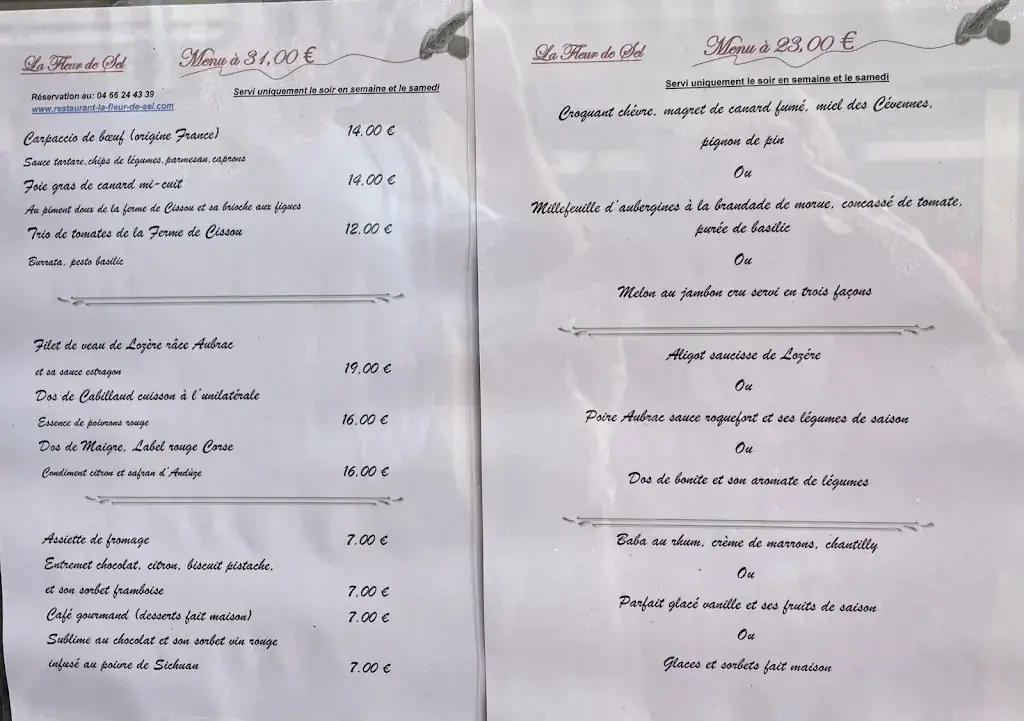 La Fleur de Sel
Menu à 31,00 €
Réservation au: 04 66 24 43 39
www.restaurant-la-fleur-de-sel.com
Servi uniquement le soir en semaine et le samedi
Carpaccio de bœuf (origine France) 14.00 €
Sauce tartare, chips de légumes, parmesan, caprons
Foie gras de canard mi-cuit 14.00 €
Au piment doux de la ferme de Cissou et sa brioche aux figues
Trio de tomates de la Ferme de Cissou 12.00 €
Burrata, pesto basilic
Filet de veau de Lozère râce Aubrac
et sa sauce estragon 19.00 €
Dos de Cabillaud cuisson à l'unilatérale
Essence de poivrons rouge 16.00 €
Dos de Maigre, Label rouge Corse
Condiment citron et safran d'Andùze 16.00 €
Assiette de fromage 7.00 €
Entremet chocolat, citron, biscuit pistache,
et son sorbet framboise 7.00 €
Café gourmand (desserts fait maison) 7.00 €
Sublime au chocolat et son sorbet vin rouge
infusé au poivre de Sichuan 7.00 €
La Fleur de Sel
Menu à 23,00 €
Servi uniquement le soir en semaine et le samedi
Croquant chévre, magret de canard fumé, miel des Cévennes,
pignon de pin
Ou
Millefeuille d'aubergines à la brandade de morue, concassé de tomate,
purée de basilic
Ou
Melon au jambon cru servi en trois façons
Aligot saucisse de Lozére
Ou
Poire Aubrac sauce roquefort et ses légumes de saison
Ou
Dos de bonite et son aromate de légumes
Baba au rhum, crème de marrons, chantilly
Ou
Parfait glacé vanille et ses fruits de saison
Ou
Glaces et sorbets fait maison